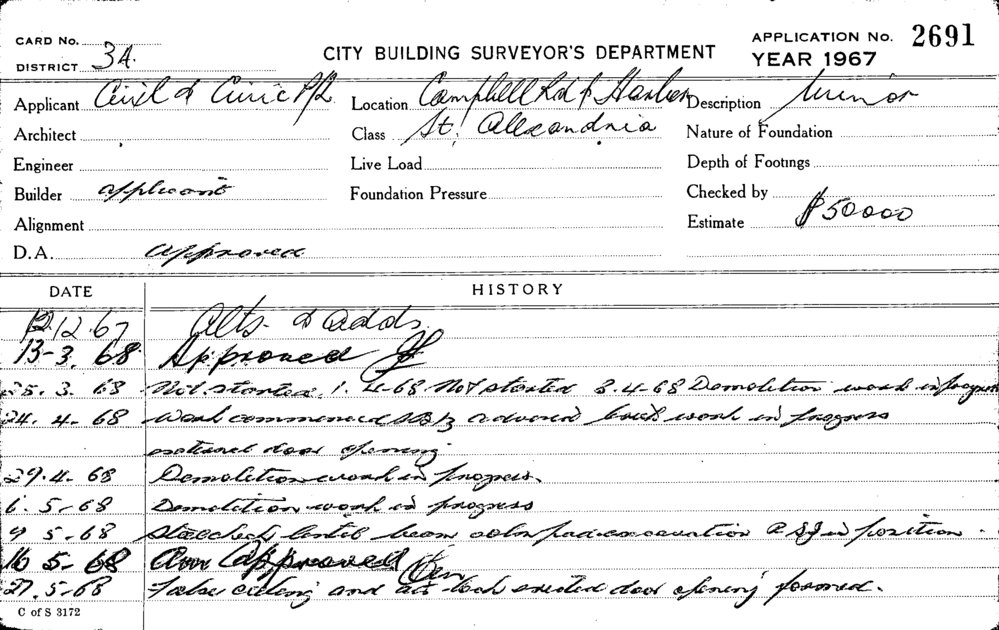 CARD No.
DISTRICT 3A.
CITY BUILDING SURVEYOR'S DEPARTMENT
APPLICATION No. 2691
YEAR 1967
Applicant Civil & Civic P/L Location Campbell Rd & Description Minor
Architect Class St. Alexandria Nature of Foundation
Engineer Live Load Depth of Footings
Builder applicant Foundation Pressure Checked by
Alignment Estimate $50000
D.A. approved
DATE HISTORY
12.12.67 Alts. & adds
13-3.68 Approved
25.3.68 Not started. 1.4-68 Not started 3.4-68 Demolition work in progress
24.4-68 Work commenced brick work in progress
door opening
29.4-68 Demolition work in progress.
6.5-68 Demolition work in progress
9 5-68 beam excavation in position.
16 5-68 Approved
27.5-68 False ceiling and erected door opening formed.
C of S 3172